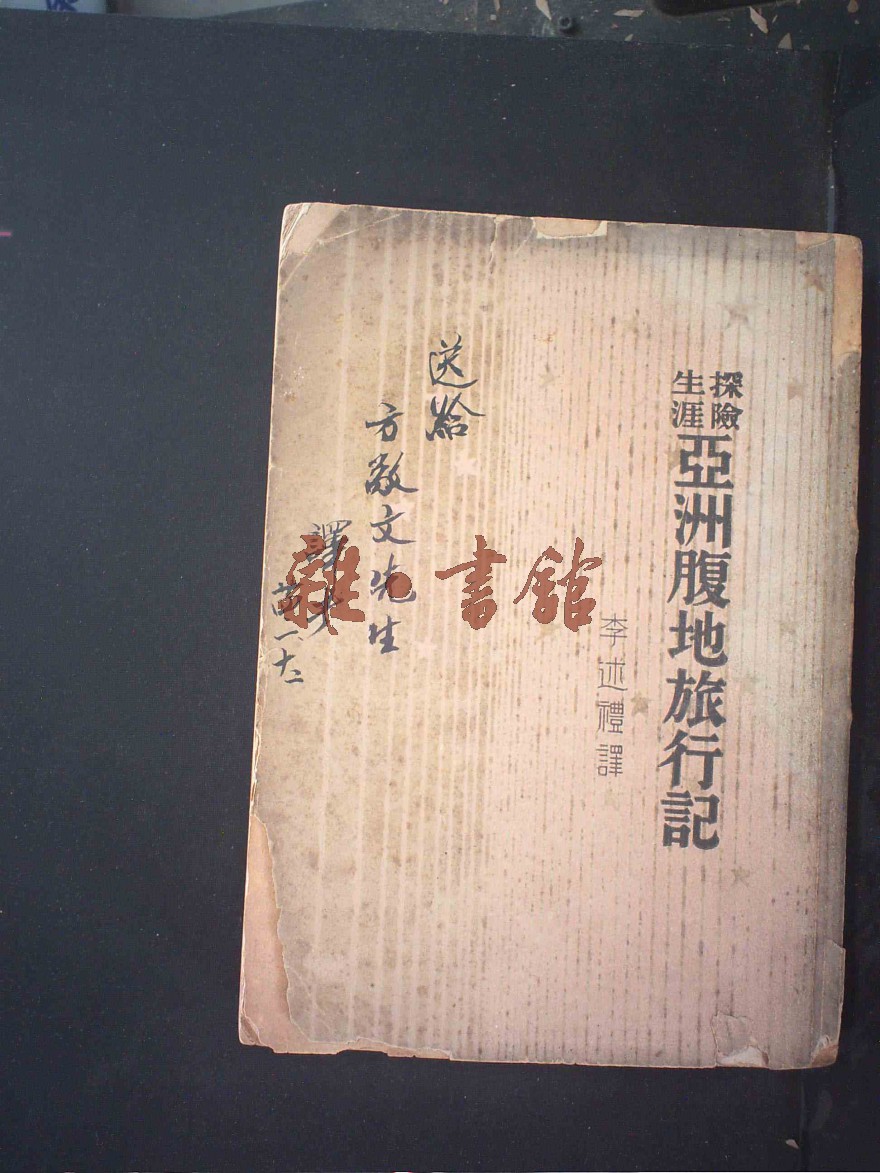 探險
生涯
亞洲腹地旅行記
李述禮譯
送給
方敬文先生
譯者
一、十二
雜·書館